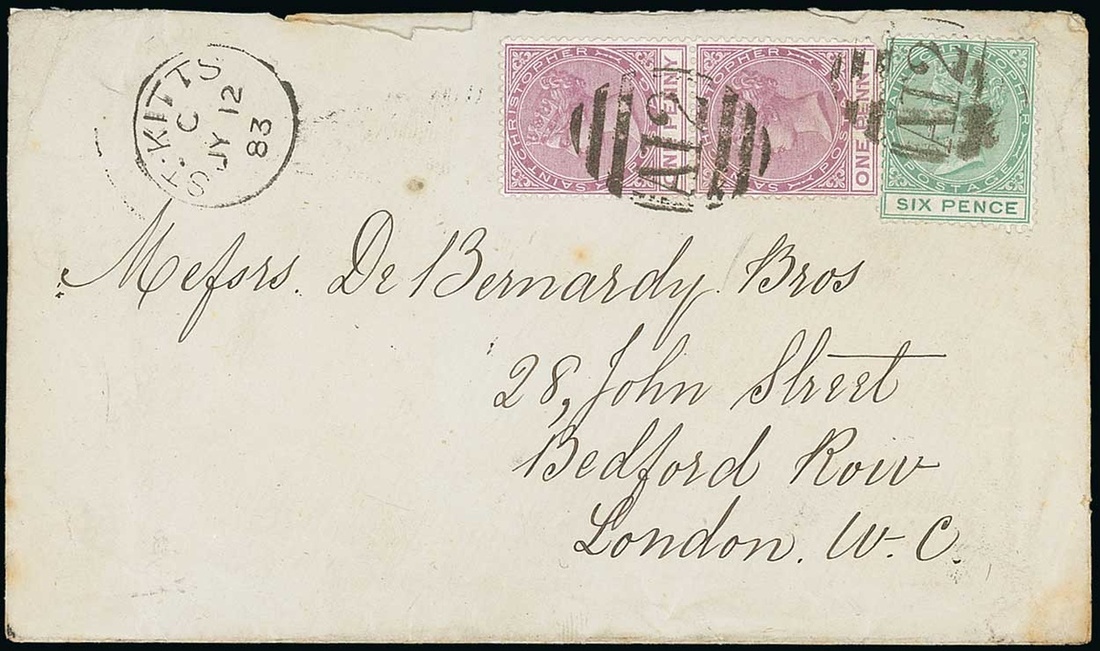 ST. KITTS
C
JY 12
83
SAINT CHRISTOPHER
POSTAGE
ONE PENNY
SAINT CHRISTOPHER
POSTAGE
ONE PENNY
A12
SAINT CHRISTOPHER
POSTAGE
SIX PENCE
A12
Messrs. De Bernardy Bros
28, John Street
Bedford Row
London. W. C.